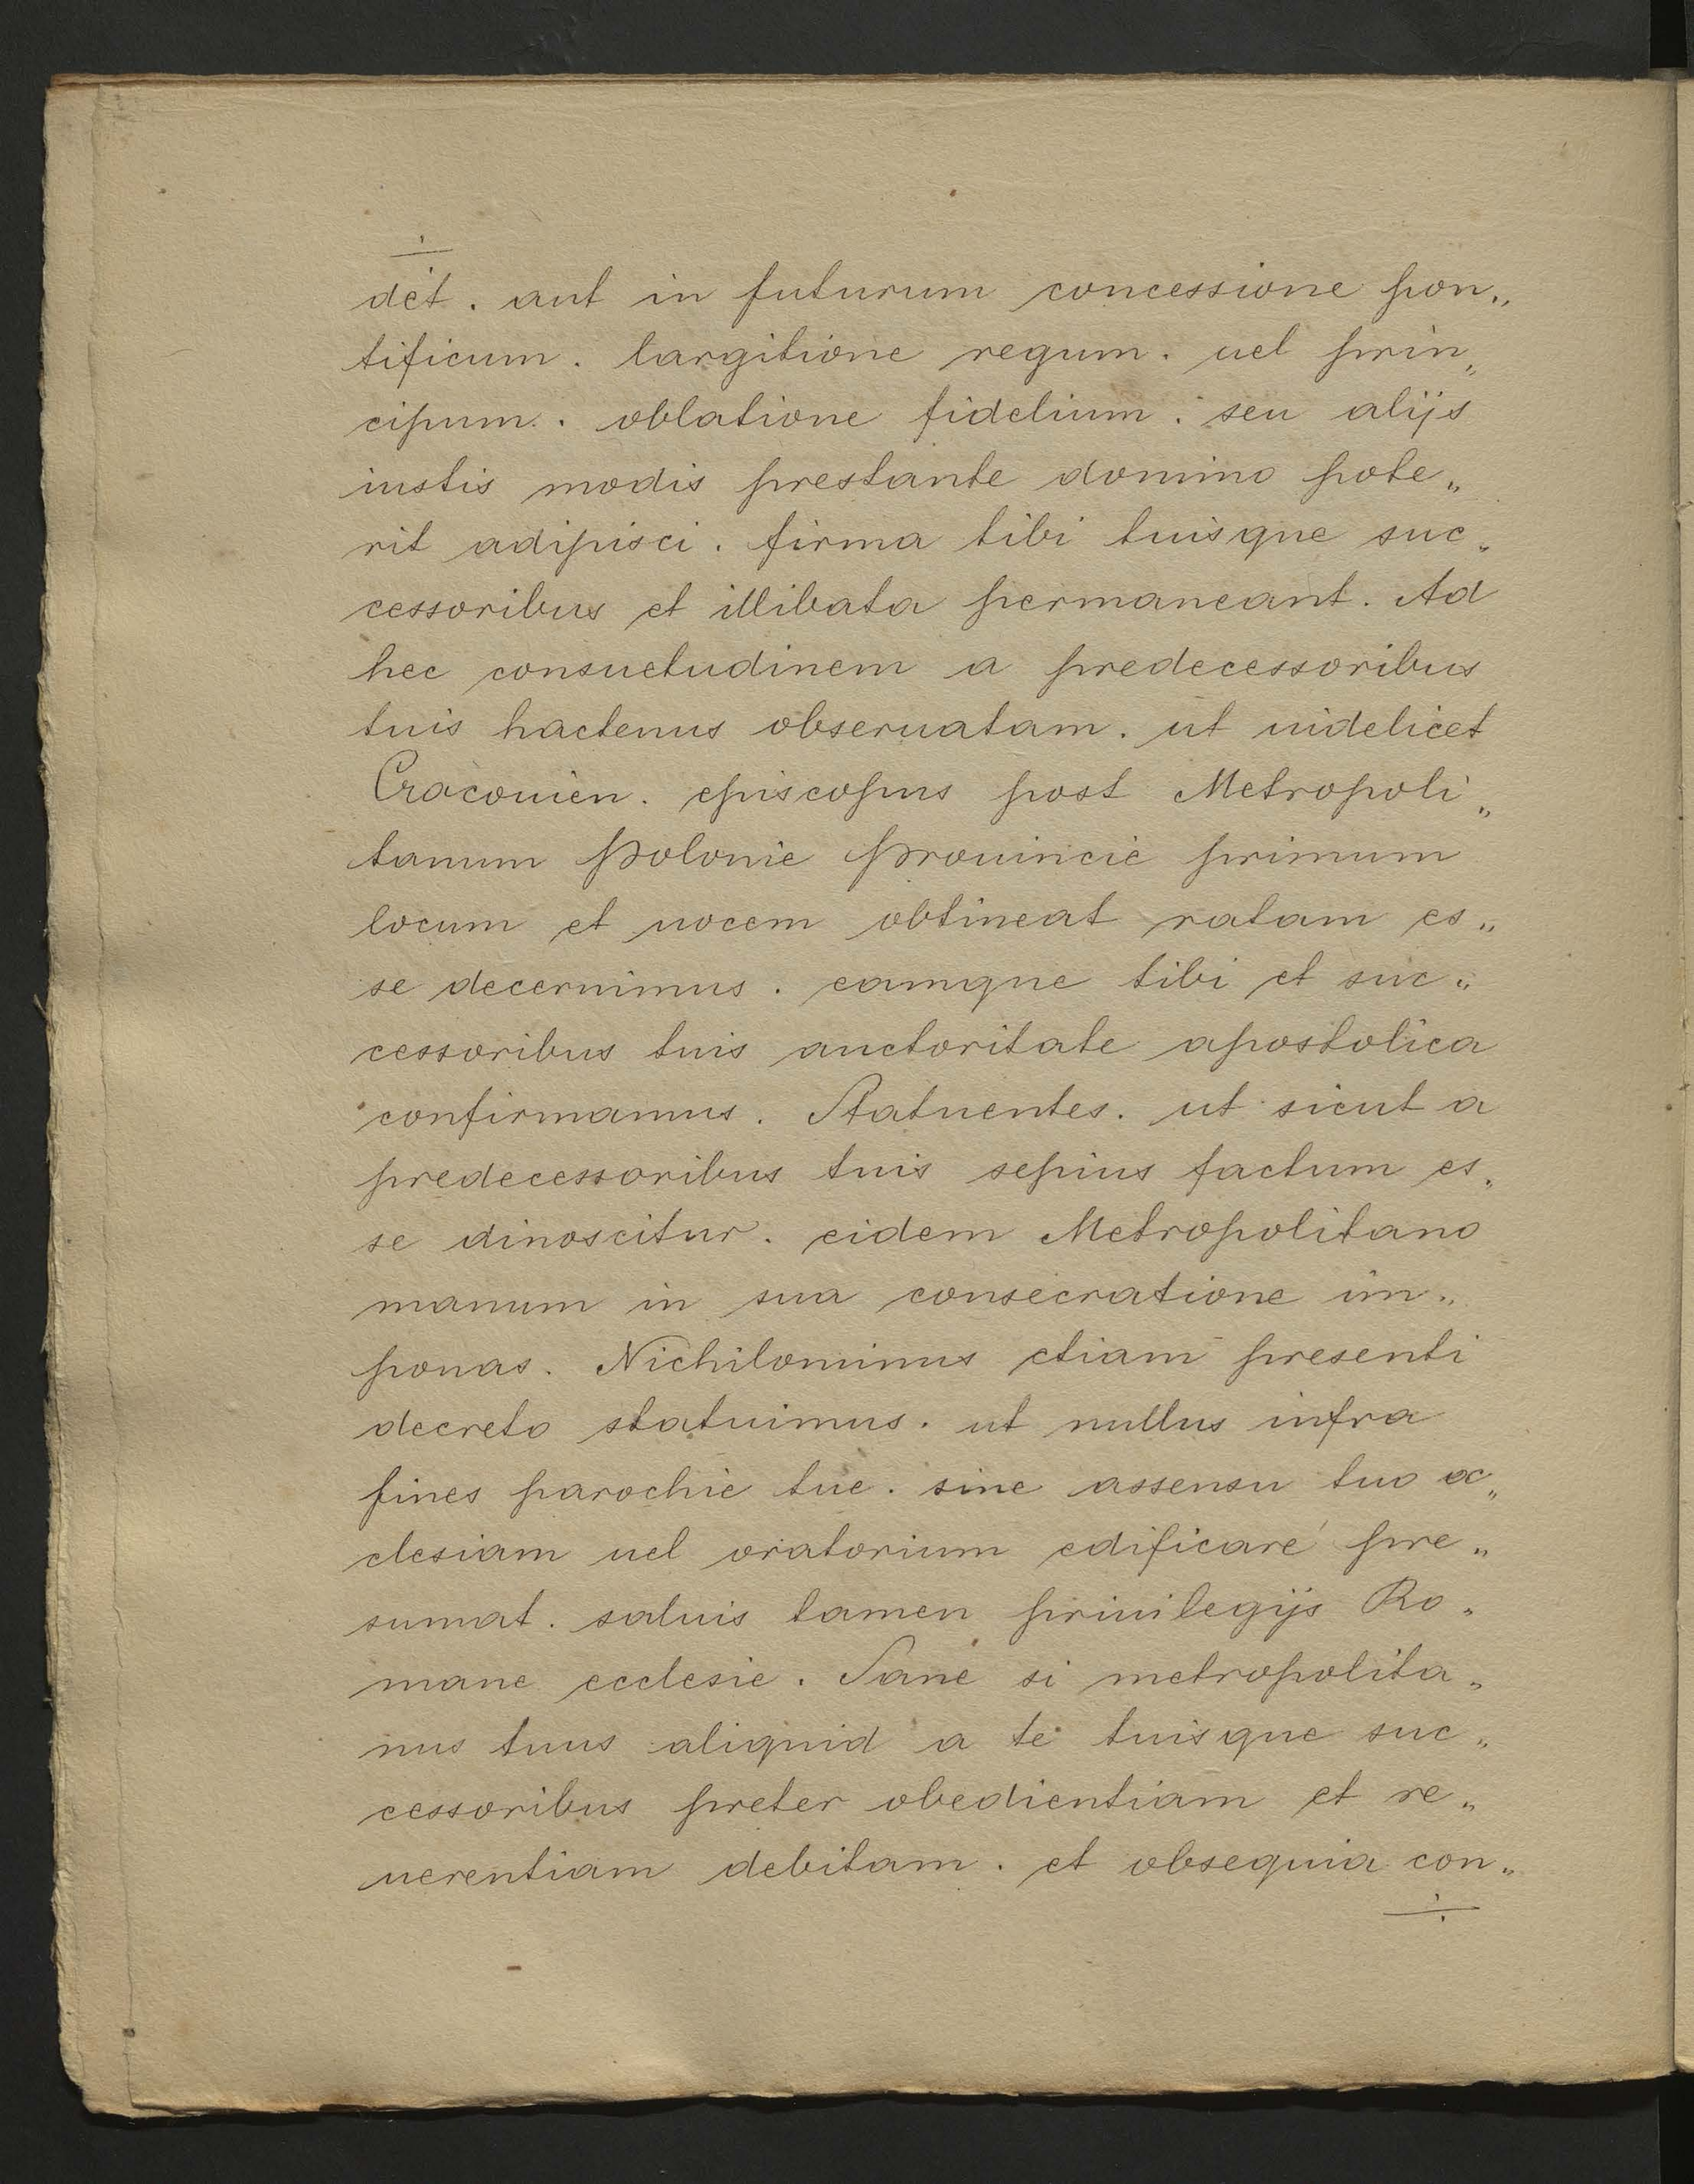 det. aut in futurum concessione pon„
tificum. largitione regum. uel prin„
cipum. oblatione fidelium. seu alijs
iustis modis prestante domino pote„
rit adipisci. firma tibi tuisque suc„
cessoribus et illibata permaneant. Ad
hec consuetudinem a predecessoribus
tuis hactenus obseruatam. ut uidelicet
Cracouien. episcopus post Metropoli„
tanum Polonie Prouincie primum
locum et uocem obtineat ratam es„
se decernimus. eamque tibi et suc„
cessoribus tuis auctoritate apostolica
confirmamus. Statuentes. ut sicut a
predecessoribus tuis sepius factum es„
se dinoscitur. eidem Metropolitano
manum in sua consecratione im„
ponas. Nichilominus etiam presenti
decreto statuimus. ut nullus infra
fines parochie tue. sine assensu tuo ec„
clesiam uel oratorium edificare pre„
sumat. saluis tamen priuilegijs Ro„
mane ecclesie. Sane si metropolita„
nus tuus aliquid a te tuisque suc„
cessoribus preter obedientiam et re„
uerentiam debitam. et obsequia con„